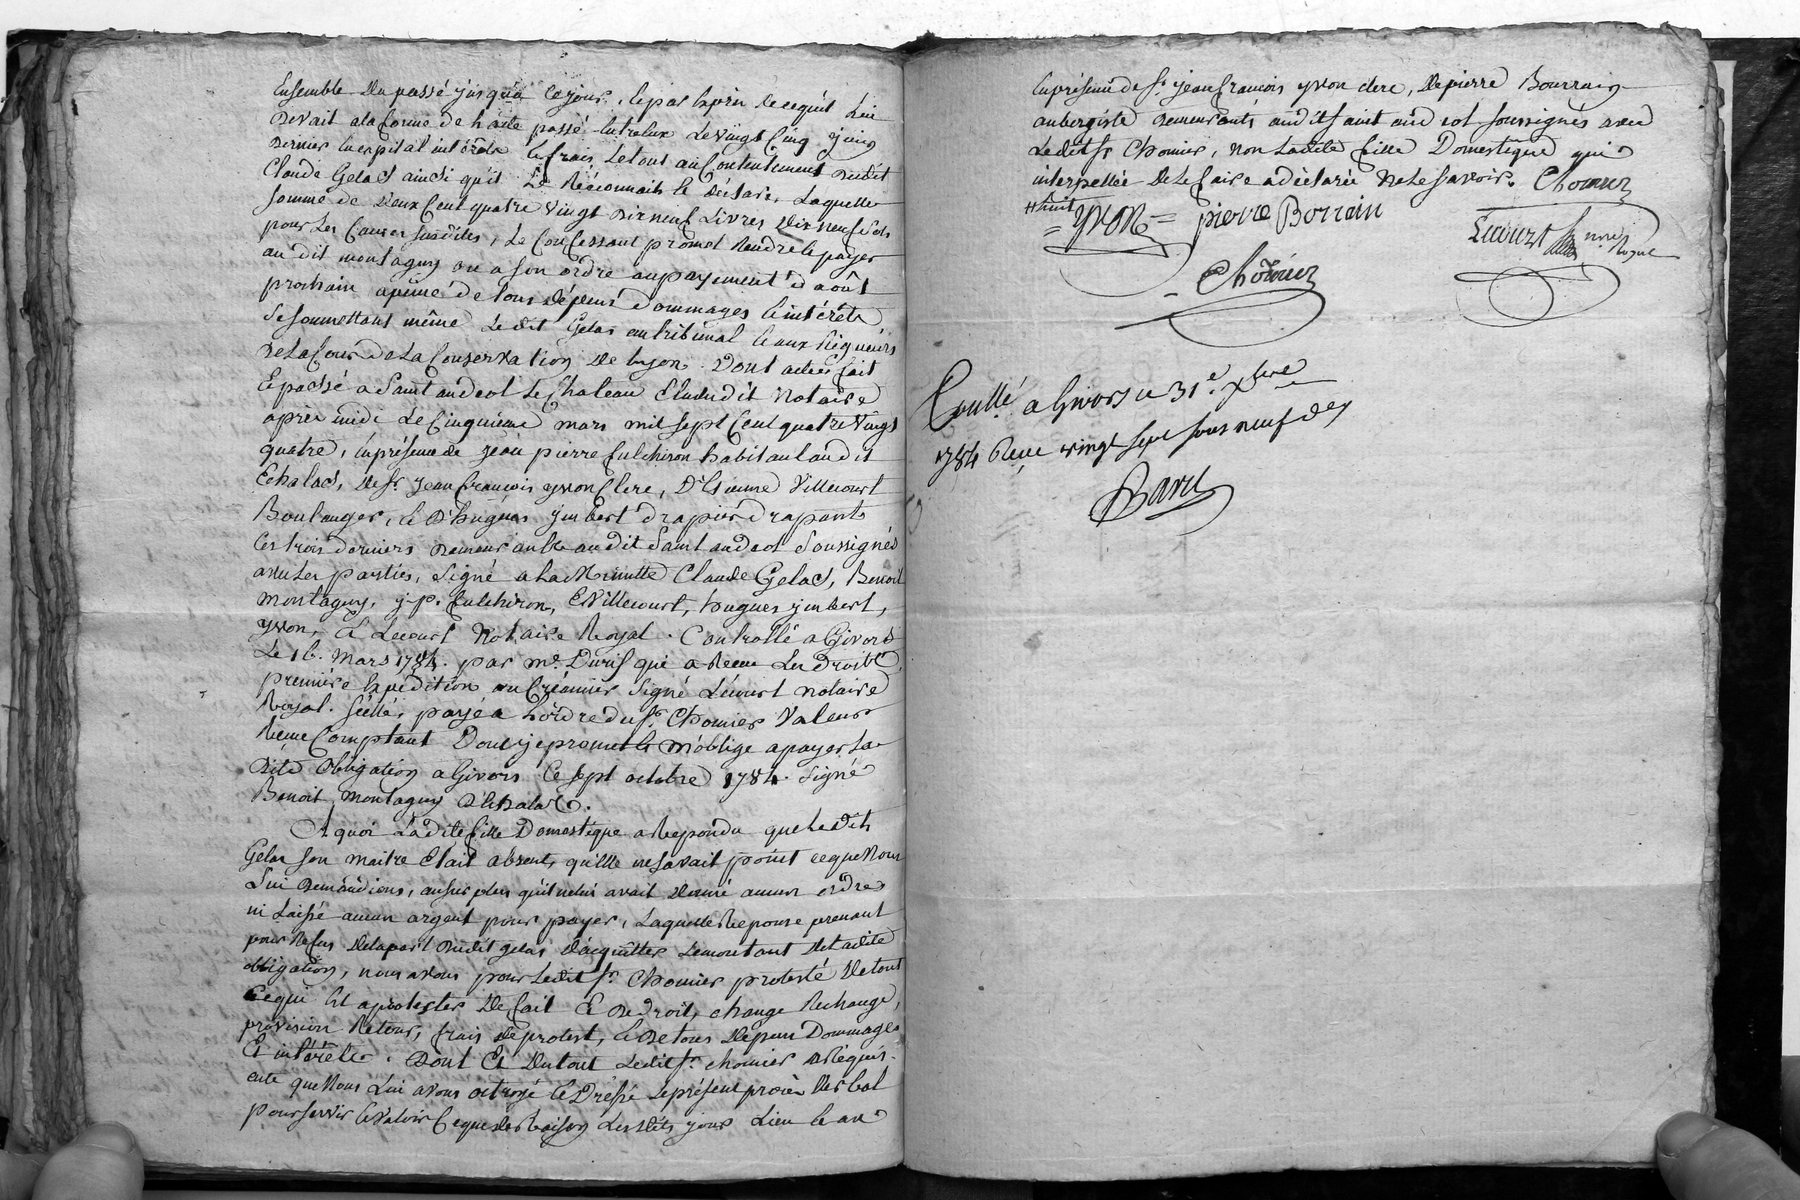 Ensemble du passé jusqu'à ce jour, le pas le prix de ce qu'il lui
devait a la forme de l'acte passé entr'eux le vingt cinq juin
dernier en capital intérêts & frais, le tout au contentement dudit
Claude Gelas ainsi qu'il le Reconnait & déclare, Laquelle
somme de deux Cent quatre vingt dix neuf Livres dix neuf sols
pour les Causes susdites, Le Confessant promet Rendre & payer
au dit montagny ou a son ordre au payement d'août
prochain a peine de tous dépens dommages & intérêts
se soumettant même Le dit Gelas au tribunal & aux Rigueurs
de la Cour de la Conservation de Lyon. Dont acte fait
& passé a Saint andeol Le Chateau Etude dudit Notaire
après midi Le Cinquième mars mil sept Cent quatre Vingt
quatre, en présence de Jean pierre fulchiron habitant audit
Echalas, de sr. jean françois yvon Clerc, d'Etienne Villecourt
Boulanger, & d'hugues ymbert drapier drapant
Ces trois derniers demeurants au dit Saint andeol Soussignés
avec les parties, signé a La Minutte Claude Gelas, Benoit
montagny, j. p. fulchiron, E Villecourt, hugues ymbert,
yvon, & Lecourt Notaire Royal. Controllé a Givors
Le 16. Mars 1784. par me. Duris qui a Recu Les droits.
première Expédition au Créancier signé Lecourt notaire
Royal. scéllé, payé a l'ordre du sr. Chomier Valeur
Recue Comptant Dont je promet & m'oblige a payer La
dite Obligation a Givors Ce sept octobre 1784. signé
Benoit montagny d'Echalas.
A quoi Ladite fille Domestique a Repondu que Ledit
Gelas son maitre Etait absent, qu'Elle ne savait point ce que Nous
Lui demandions, au surplus qu'il ne lui avait donné aucun ordre
ni Laissé aucun argent pour payer, Laquelle Reponse prenant
pour Refus de la part dudit gelas d'acquitter Le montant de Ladite
obligation, nous avons pour Ledit sr. Chomier protesté de tout
Ce qui Est a protester de fait & de droit, change Rechange,
provision Retour, frais de protest, & de tous depens Dommages
Et intérêts. Dont Et du tout Ledit sr. chomier a Requis
acte que Nous Lui avons octroyé & Dressé Le présent procès Verbal
pour servir & Valoir Ce que de Raison Lesdits jour Lieu & an
En présence de sr. jean françois yvon clerc, de pierre Bourrain
aubergiste demeurants audit saint andeol soussignés avec
Ledit sr. Chomier, non Ladite fille Domestique qui
interpellée de Le faire a déclaré ne Le savoir. Chomier
huit
yvon pierre Borrein
Lecourt nre. Royal
Chomier
Conllé a Givors ce 31e. Xbre
1784 Reçu vingt sept sous neuf de